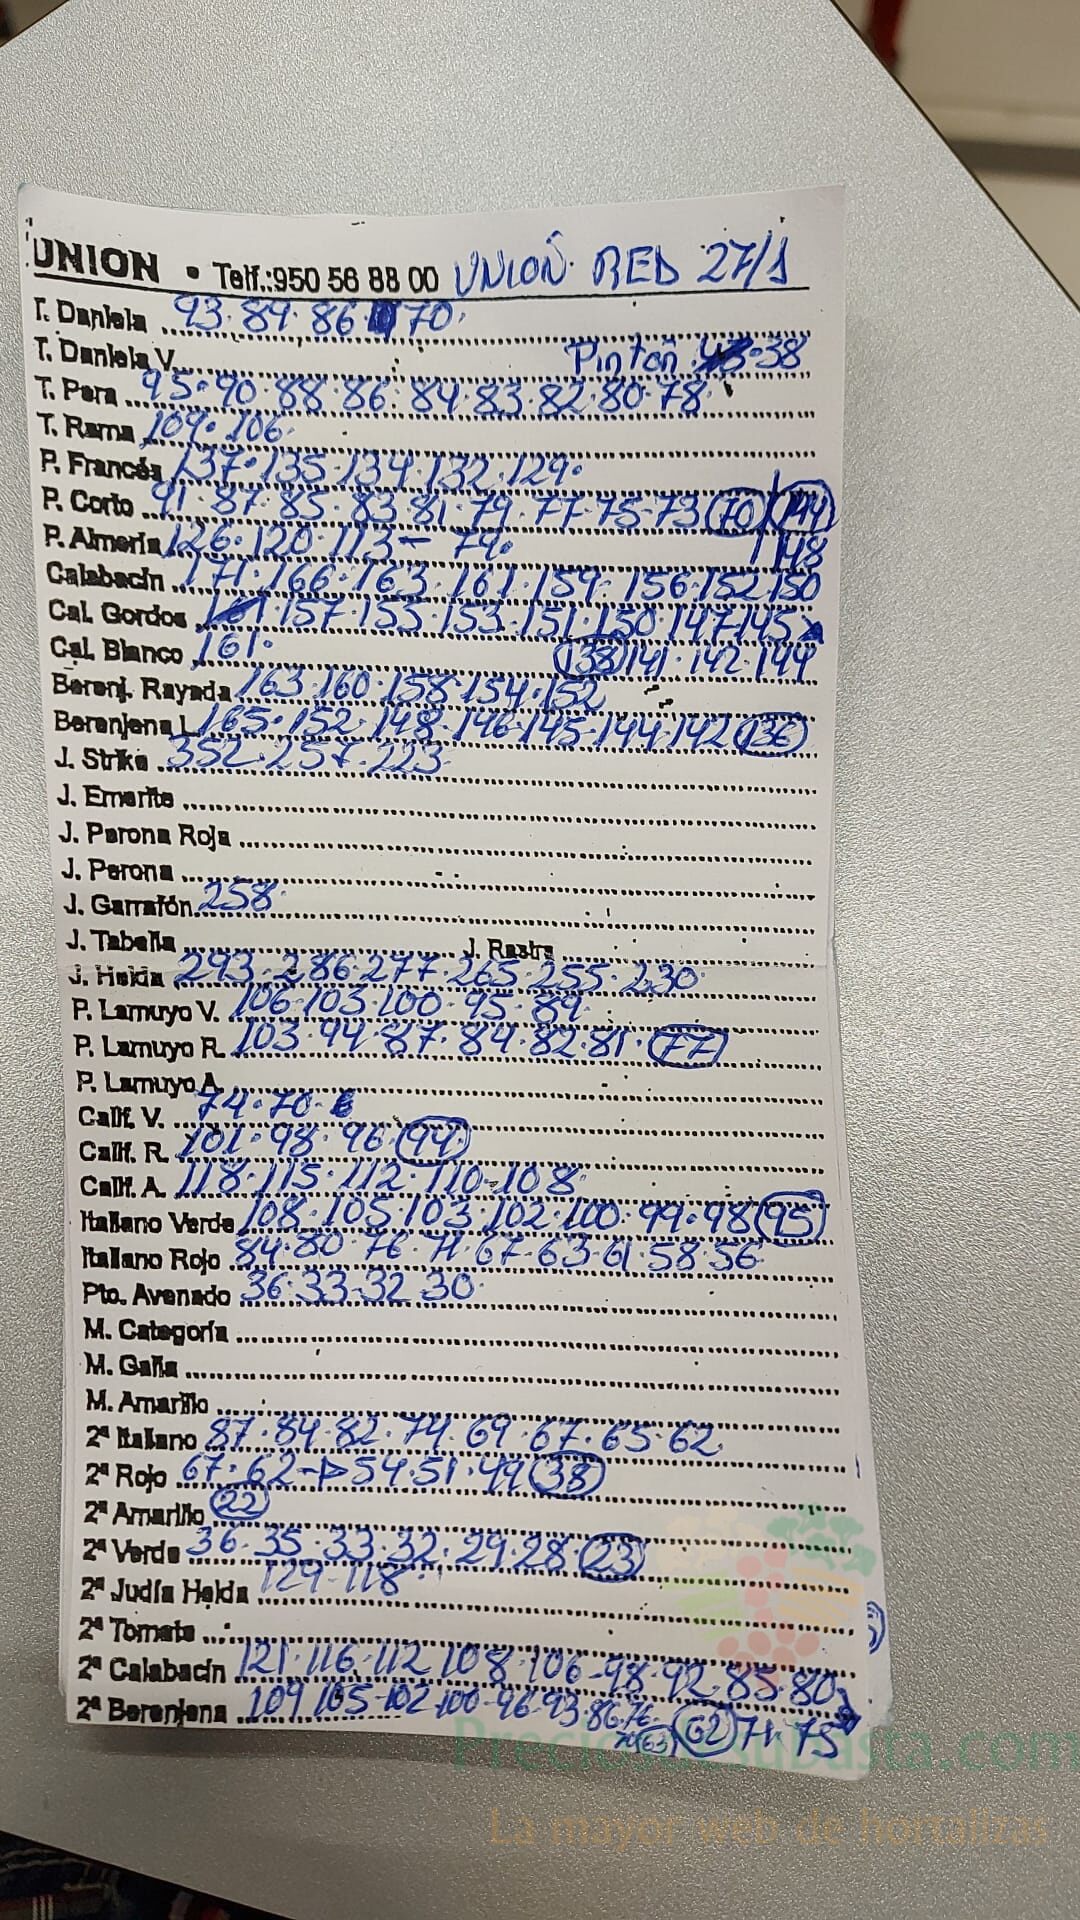 UNION • Telf.:950 56 88 00 UNION RED 27/1
T. Daniela 93·89·86· 70·
T. Daniela V. Pinton 38
T. Pera 95·90·88·86·84·83·82·80·78·
T. Rama 109·106·
P. Francés 137·135·134·132·129·
P. Corto 91·87·85·83·81·79·77·75·73 70 144
P. Almería 126·120·113- 74· 148
Calabacín 171·166·163·161·159·156·152·150
Cal. Gordos 157·155·153·151·150·147·145
Cal. Blanco 161· 138 141·142·144
Berenj. Rayada 163·160·158·154·152
Berenjena L. 165·152·148·146·145·144·142 136
J. Strike 352·257·223·
J. Emerite
J. Perona Roja
J. Perona
J. Garrafón 258·
J. Tabella J. Rastra
J. Helda 293·286·277·265·255·230·
P. Lamuyo V. 106·103·100·95·89·
P. Lamuyo R. 103·94·87·84·82·81·77
P. Lamuyo A.
Calif. V. 74·70·
Calif. R. 101·98·96·94
Calif. A. 118·115·112·110-108
Italiano Verde 108·105·103·102·100·99·98 95
Italiano Rojo 84·80·76·71·67·63·61·58·56
Pto. Avenado 36·33·32·30·
M. Categoría
M. Galia
M. Amarillo
2ª Italiano 87·84·82·74·69·67·65·62
2ª Rojo 67·62-54·51·49 38
2ª Amarillo 22
2ª Verde 36·35·33·32·29·28·23
2ª Judía Helda 129·118·
2ª Tomate
2ª Calabacín 121·116·112 108·106-98·92·85·80
2ª Berenjena 109 105-102·100-96·93·86·76
63 62 71·75
Preciosdesubasta.com
La mayor web de hortalizas